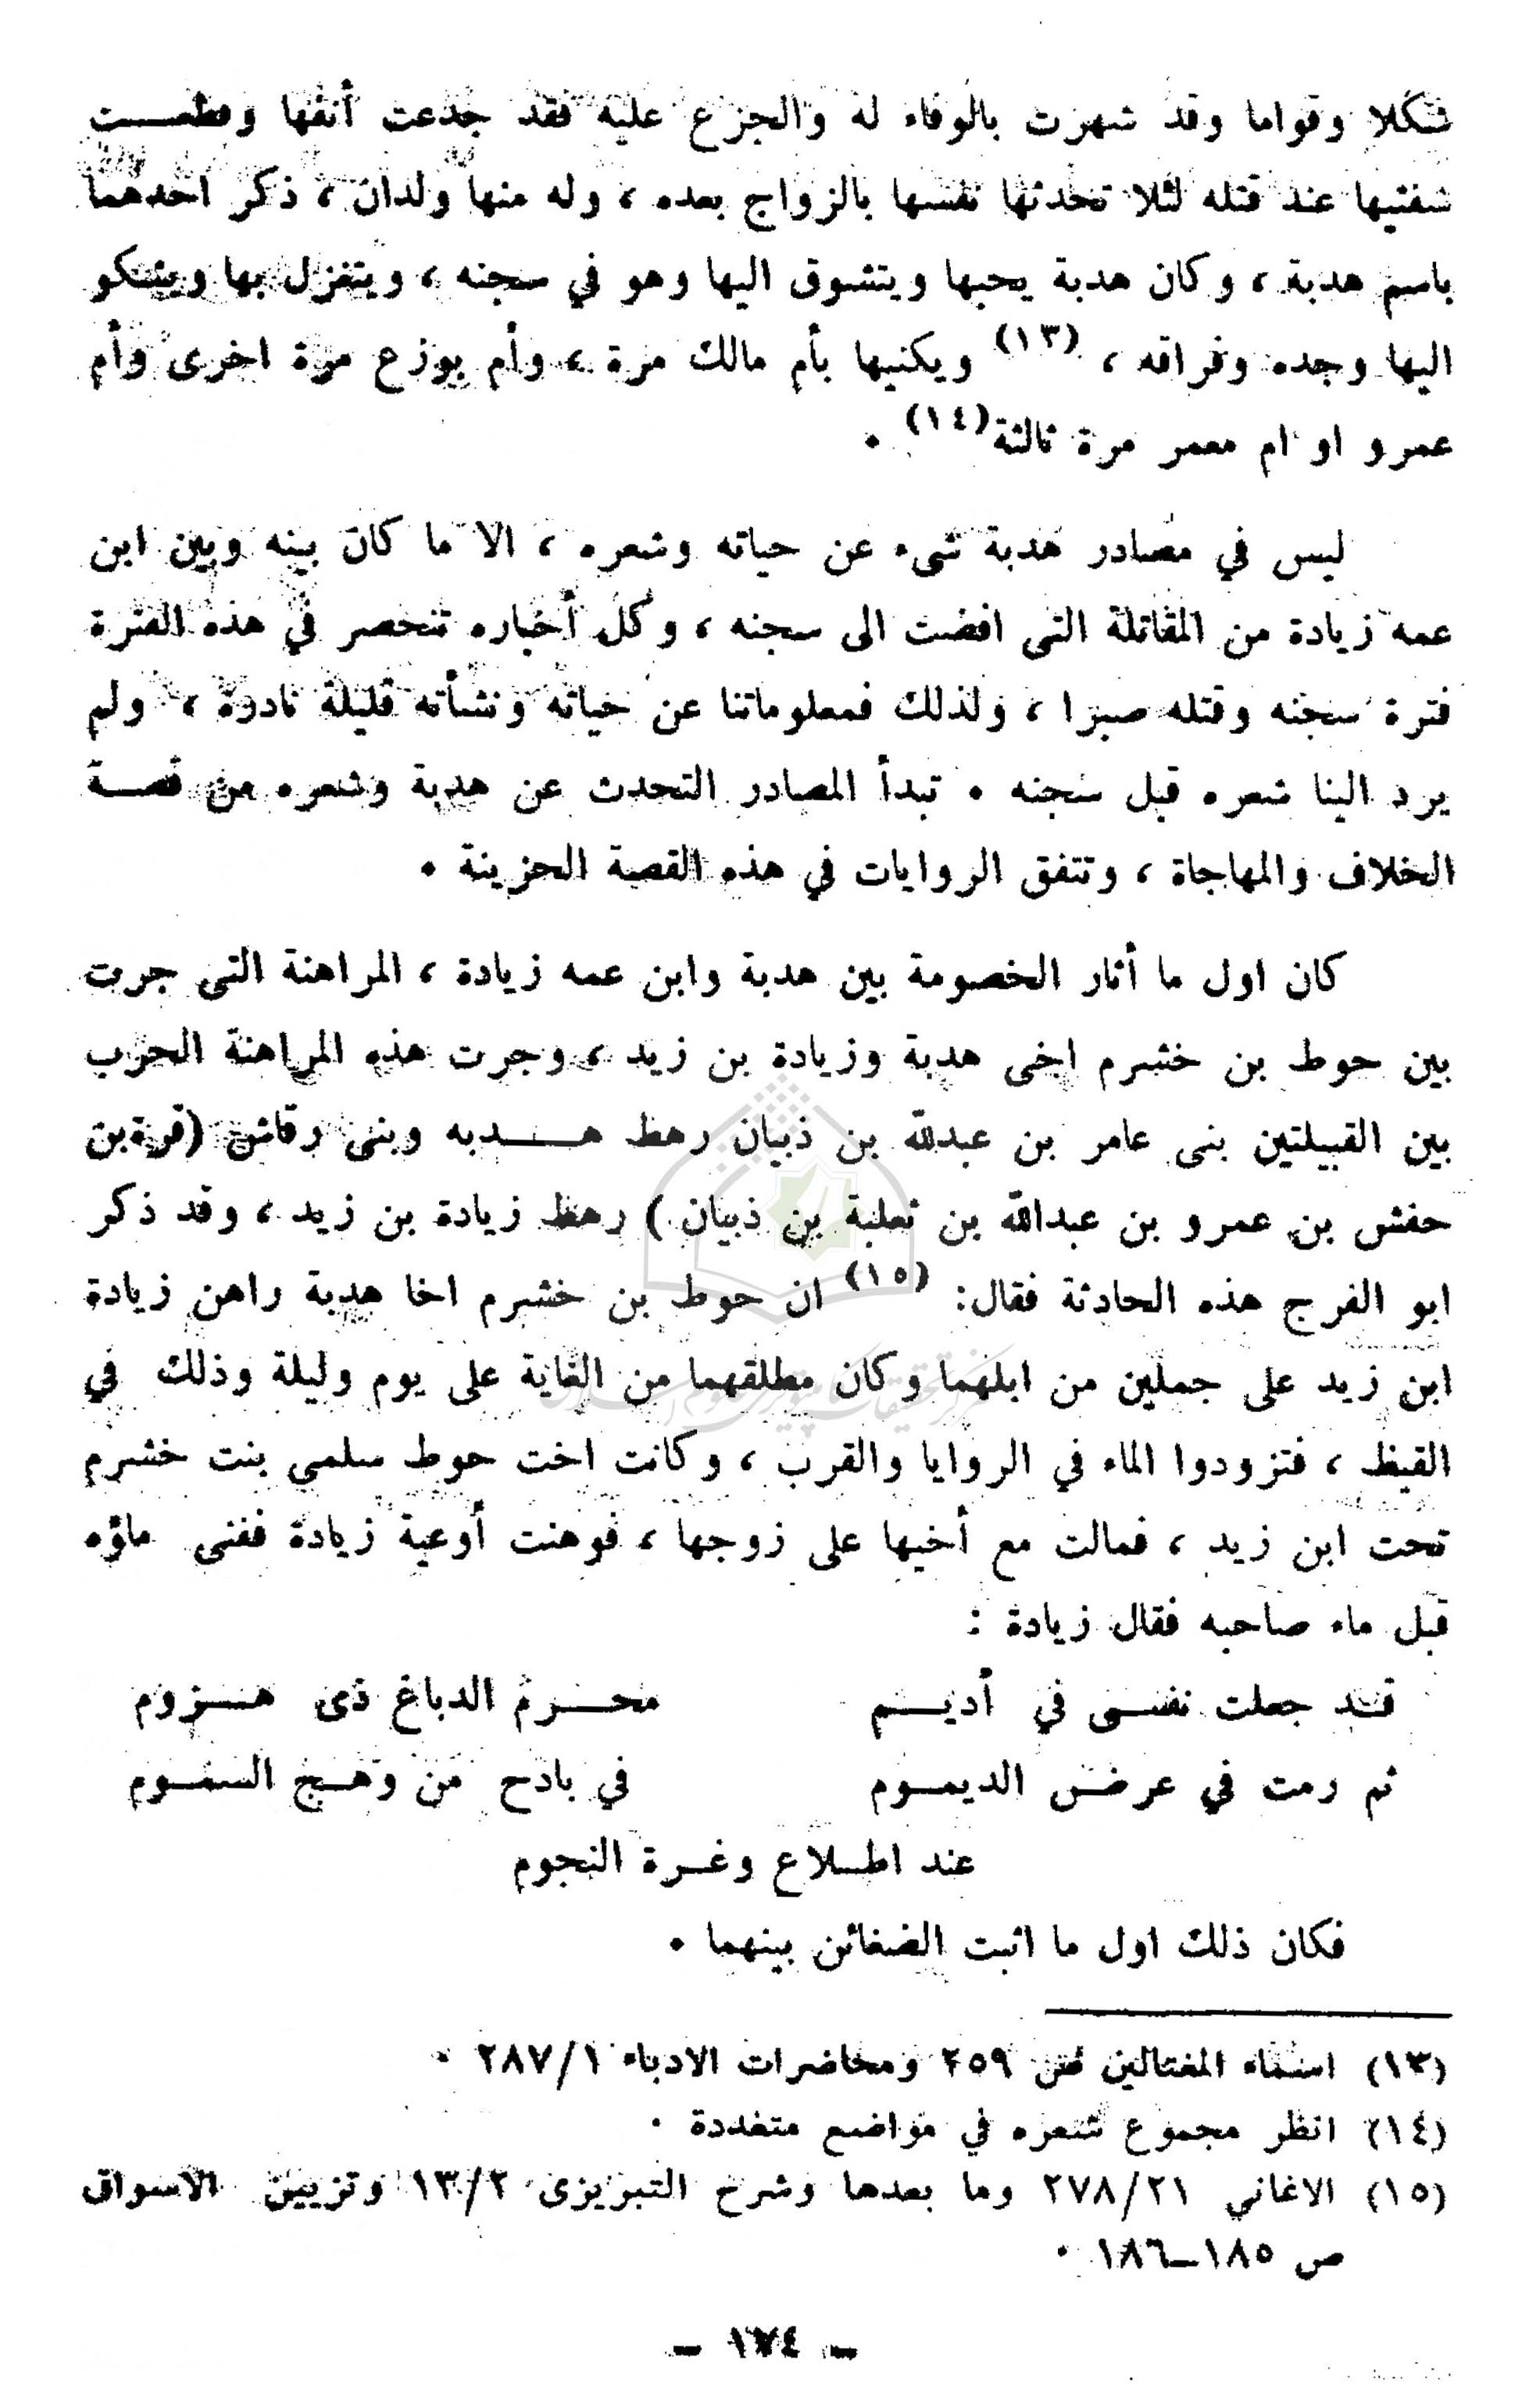 شكلا وقواما وقد شهرت بالوفاء له والجزع عليه فقد جدعت أنفها وقطعــت
شفتيها عند قتله لئلا تحدثها نفسها بالزواج بعده ، وله منها ولدان ، ذكر احدهما
باسم هدبة ، وكان هدبة يحبها ويتشوق اليها وهو في سجنه ، ويتغزل بها ويشكو
اليها وجده وفراقه ، (١٣) ويكنيها بأم مالك مرة ، وأم بوزع مرة اخرى وأم
عمرو او ام معمر مرة ثالثة(١٤) •
ليس في مصادر هدبة شىء عن حياته وشعره ، الا ما كان بينه وبين ابن
عمه زيادة من المقاتلة التى افضت الى سجنه ، وكل أخباره تنحصر في هذه الفترة
فترة سجنه وقتله صبرا ، ولذلك فمعلوماتنا عن حياته ونشأته قليلة نادرة ، ولم
يرد الينا شعره قبل سجنه • تبدأ المصادر التحدث عن هدبة وشعره من قصــة
الخلاف والمهاجاة ، وتتفق الروايات في هذه القصة الحزينة •
كان اول ما أثار الخصومة بين هدبة وابن عمه زيادة ، المراهنة التى جرت
بين حوط بن خشرم اخى هدبة وزيادة بن زيد ، وجرت هذه المراهنة الحرب
بين القبيلتين بنى عامر بن عبدالله بن ذبيان رهط هـــدبه وبنى رقاش (قرةبن
حفش بن عمرو بن عبدالله بن ثعلبة بن ذبيان ) رهط زيادة بن زيد ، وقد ذكر
ابو الفرج هذه الحادثة فقال: (١٥) ان حوط بن خشرم اخا هدبة راهن زيادة
ابن زيد على جملين من ابلهما وكان مطلقهما من الغاية على يوم وليلة وذلك في
القيظ ، فتزودوا الماء في الروايا والقرب ، وكانت اخت حوط سلمى بنت خشرم
تحت ابن زيد ، فمالت مع أخيها على زوجها ، فوهنت أوعية زيادة ففنى ماؤه
قبل ماء صاحبه فقال زيادة :
قــد جعلت نفســى في أديـــم محـــرم الدباغ ذى هـــزوم
ثم رمت في عرض الديمــوم في بادح من وهــج السمــوم
عند اطــلاع وغــرة النجوم
فكان ذلك اول ما اثبت الضغائن بينهما •
(١٣) اسماء المغتالين ص ٢٥٩ ومحاضرات الادباء ٢٨٧/١ •
(١٤) انظر مجموع شعره في مواضع متعددة •
(١٥) الاغاني ٢٧٨/٢١ وما بعدها وشرح التبريزى ١٣/٢ وتزيين الاسواق
ص ١٨٥ــ١٨٦ •
ــ ١٧٤ ــ